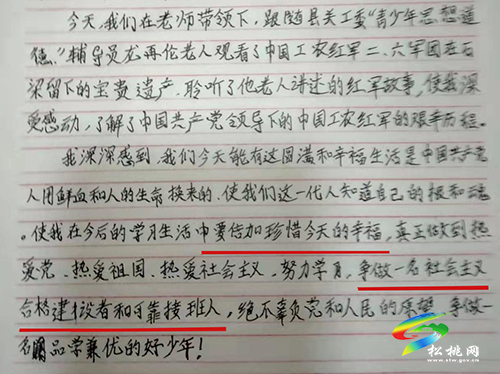 今天,我们在老师带领下,跟随县关工委"青少年思想道
德"辅导员龙再伦老人观看了中国工农红军二、六军团在石
梁留下的宝贵遗产,聆听了他老人讲述的红军故事,使我深
受感动,了解了中国共产党领导下的中国工农红军的艰辛历程。
我深深感到,我们今天能有这圆满和幸福生活是中国共产党
人用鲜血和人的生命换来的,使我们这一代人知道自己的根和魂
。使我在今后的学习生活中要倍加珍惜今天的幸福,真正做到热
爱党、热爱祖国、热爱社会主义,努力学习,争做一名社会主义
合格建设者和可靠接班人,绝不辜负党和人民的厚望,争做一
名品学兼优的好少年!
松桃网
www.stw.gov.cn